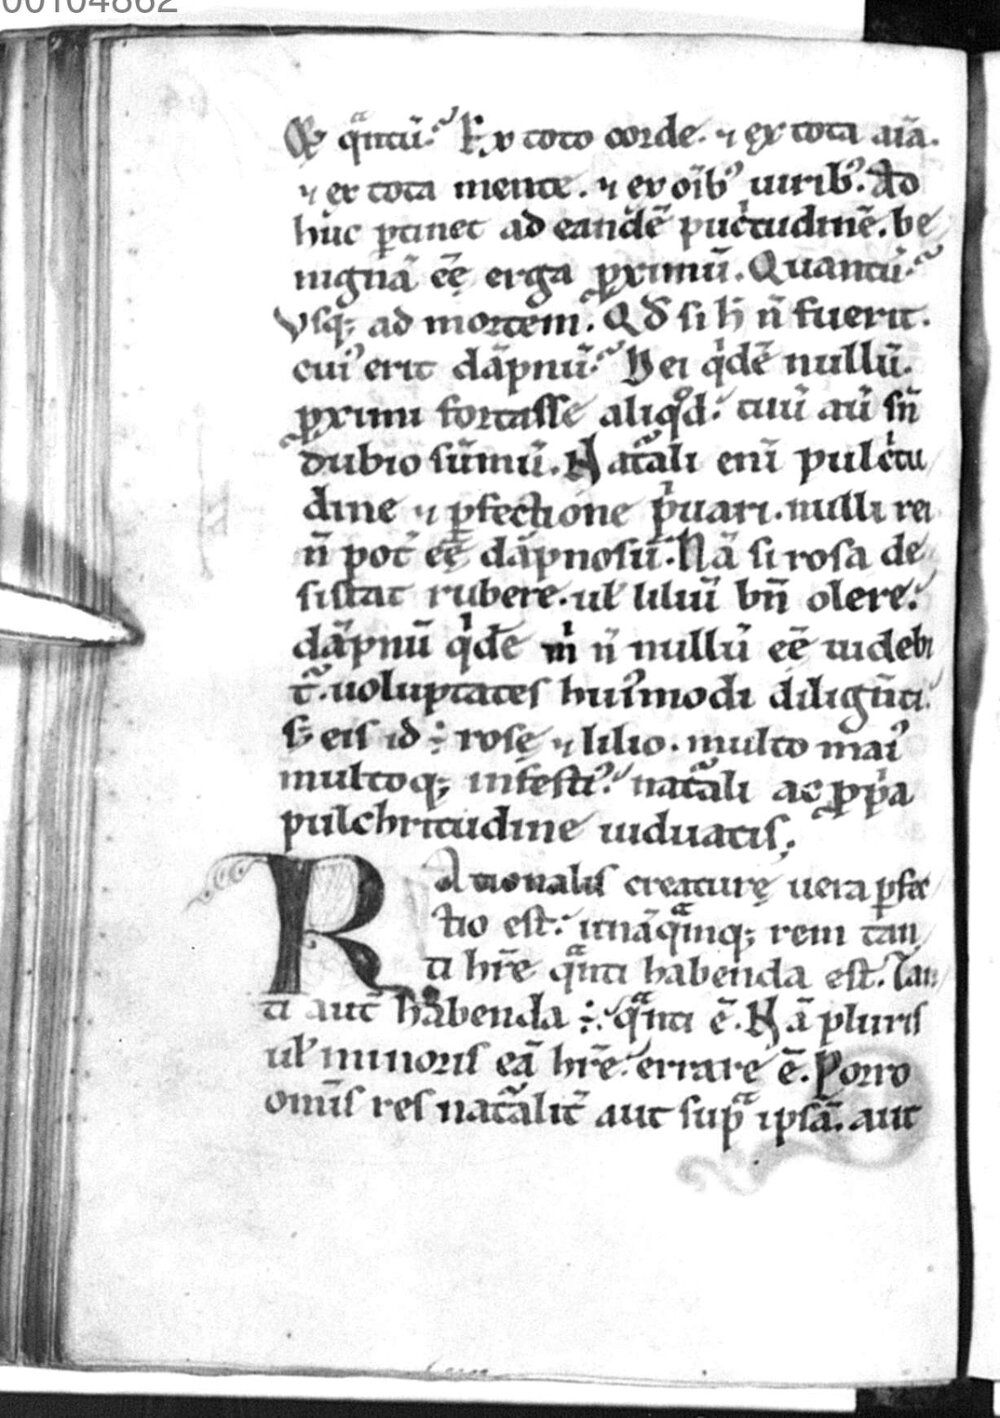 00104862
Et q̃ntũ. Ex toto corde. ⁊ ex tota aĩa.
⁊ ex tota mente. ⁊ ex oĩbꝰ uiribꝰ. Ad
huc ꝑtinet ad eandẽ pulc̃tudinẽ. be
nignã eẽ erga ꝓximũ. Quantũ.
Vsq; ad mortem. Qđ si h̃ ñ fuerit.
cuiꝰ erit dãpnũ. Dei qͥdẽ nullũ.
ꝓximi fortasse aliqͦd. tuũ aũ sñ
dubio sũmũ. Nat̃ali enĩ pulcͥtu
dine ⁊ ꝑfectione pͥuari. nulli rei
ñ pot̃ eẽ dãpnosũ. Nã si rosa de
sistat rubere. uł liliũ bñ olere.
dãpnũ qͥdẽ mͥ ñ nullũ eẽ uidebi
t̃. uoluptates huiꝰmodi diligẽti.
s; eis id ÷ rosę ⁊ lilio. multo maiꝰ
multoq; infestiꝰ. nat̃ali ac ꝓpͥa
pulchritudine uiduatis;
Rationalis creaturę uera ꝑfec
tio est. unãqᵃmq; rem tan
ti hr̃e qᵃnti habenda est. Tan
ti aut̃ habenda ÷. qᵃnti ẽ. Nã pluris
uł minoris eã hr̃e. errare ẽ. Porro
omĩs res nat̃alit̃ aut supᵃ ipsã. aut